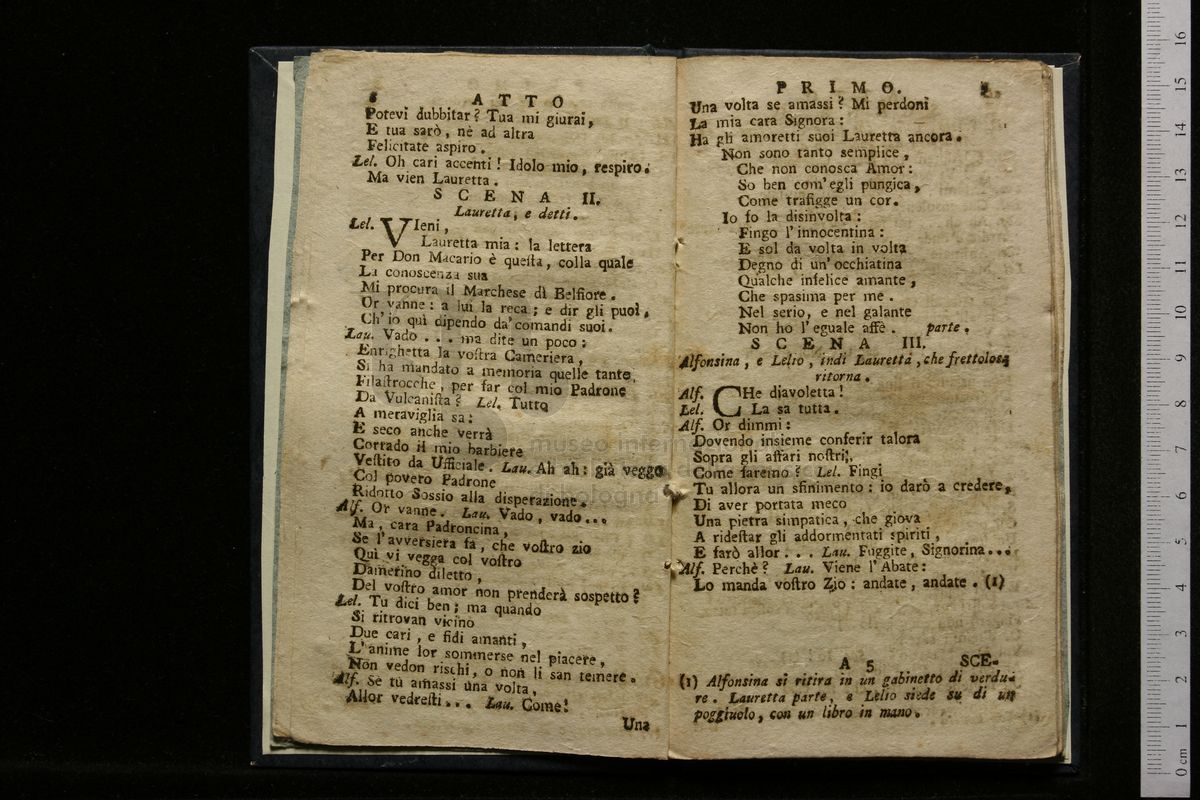 8 ATTO
Potevi dubbitar? Tua mi giurai,
E tua sarò, nè ad altra
Felicitate aspiro.
Lel. Oh cari accenti! Idolo mio, respiro.
Ma vien Lauretta.
SCENA II.
Lauretta, e detti.
Lel. VIeni,
Lauretta mia: la lettera
Per Don Macario è questa, colla quale
La conoscenza sua
Mi procura il Marchese di Belfiore.
Or vanne: a lui la reca; e dir gli puoi,
Ch'io quì dipendo da'comandi suoi.
Lau. Vado... ma dite un poco:
Enrighetta la vostra Cameriera,
Si ha mandato a memoria quelle tante
Filastrocche, per far col mio Padrone
Da Vulcanista? Lel. Tutto
A meraviglia sa:
E seco anche verrà
Corrado il mio barbiere
Vestito da Uffiziale. Lau. Ah ah: già veggo
Col povero Padrone
Ridotto Sossio alla disperazione.
Alf. Or vanne. Lau. Vado, vado...
Ma, cara Padroncina,
Se l'avversiera fa, che vostro zio
Quì vi vegga col vostro
Damerino diletto,
Del vostro amor non prenderà sospetto?
Lel. Tu dici ben; ma quando
Si ritrovan vicino
Due cari, e fidi amanti,
L'anime lor sommerse nel piacere,
Non vedon rischi, o non li san temere.
Alf. Se tu amassi una volta,
Allor vedresti... Lau. Come!
Una
PRIMO.
Una volta se amassi? Mi perdoni
La mia cara Signora:
Ha gli amoretti suoi Lauretta ancora.
Non sono tanto semplice,
Che non conosca Amor:
So ben com'egli pungica,
Come trafigge un cor.
Io fo la disinvolta:
Fingo l'innocentina:
E sol da volta in volta
Degno di un'occhiatina
Qualche infelice amante,
Che spasima per me.
Nel serio, e nel galante
Non ho l'eguale affè. parte.
SCENA III.
Alfonsina, e Lelio, indi Lauretta, che frettolosa
ritorna.
Alf. CHe diavoletta!
Lel. La sa tutta.
Alf. Or dimmi:
Dovendo insieme conferir talora
Sopra gli affari nostri,
Come faremo? Lel. Fingi
Tu allora un sfinimento: io darò a credere,
Di aver portata meco
Una pietra simpatica, che giova
A ridestar gli addormentati spiriti,
E farò allor... Lau. Fuggite, Signorina...
Alf. Perchè? Lau. Viene l'Abate:
Lo manda vostro Zio: andate, andate. (1)
A 5 SCE-
(1) Alfonsina si ritira in un gabinetto di verdu-
re. Lauretta parte, e Lelio siede su di un
poggiuolo, con un libro in mano.
museo intern
bologna
0 cm 1 2 3 4 5 6 7 8 9 10 11 12 13 14 15 16